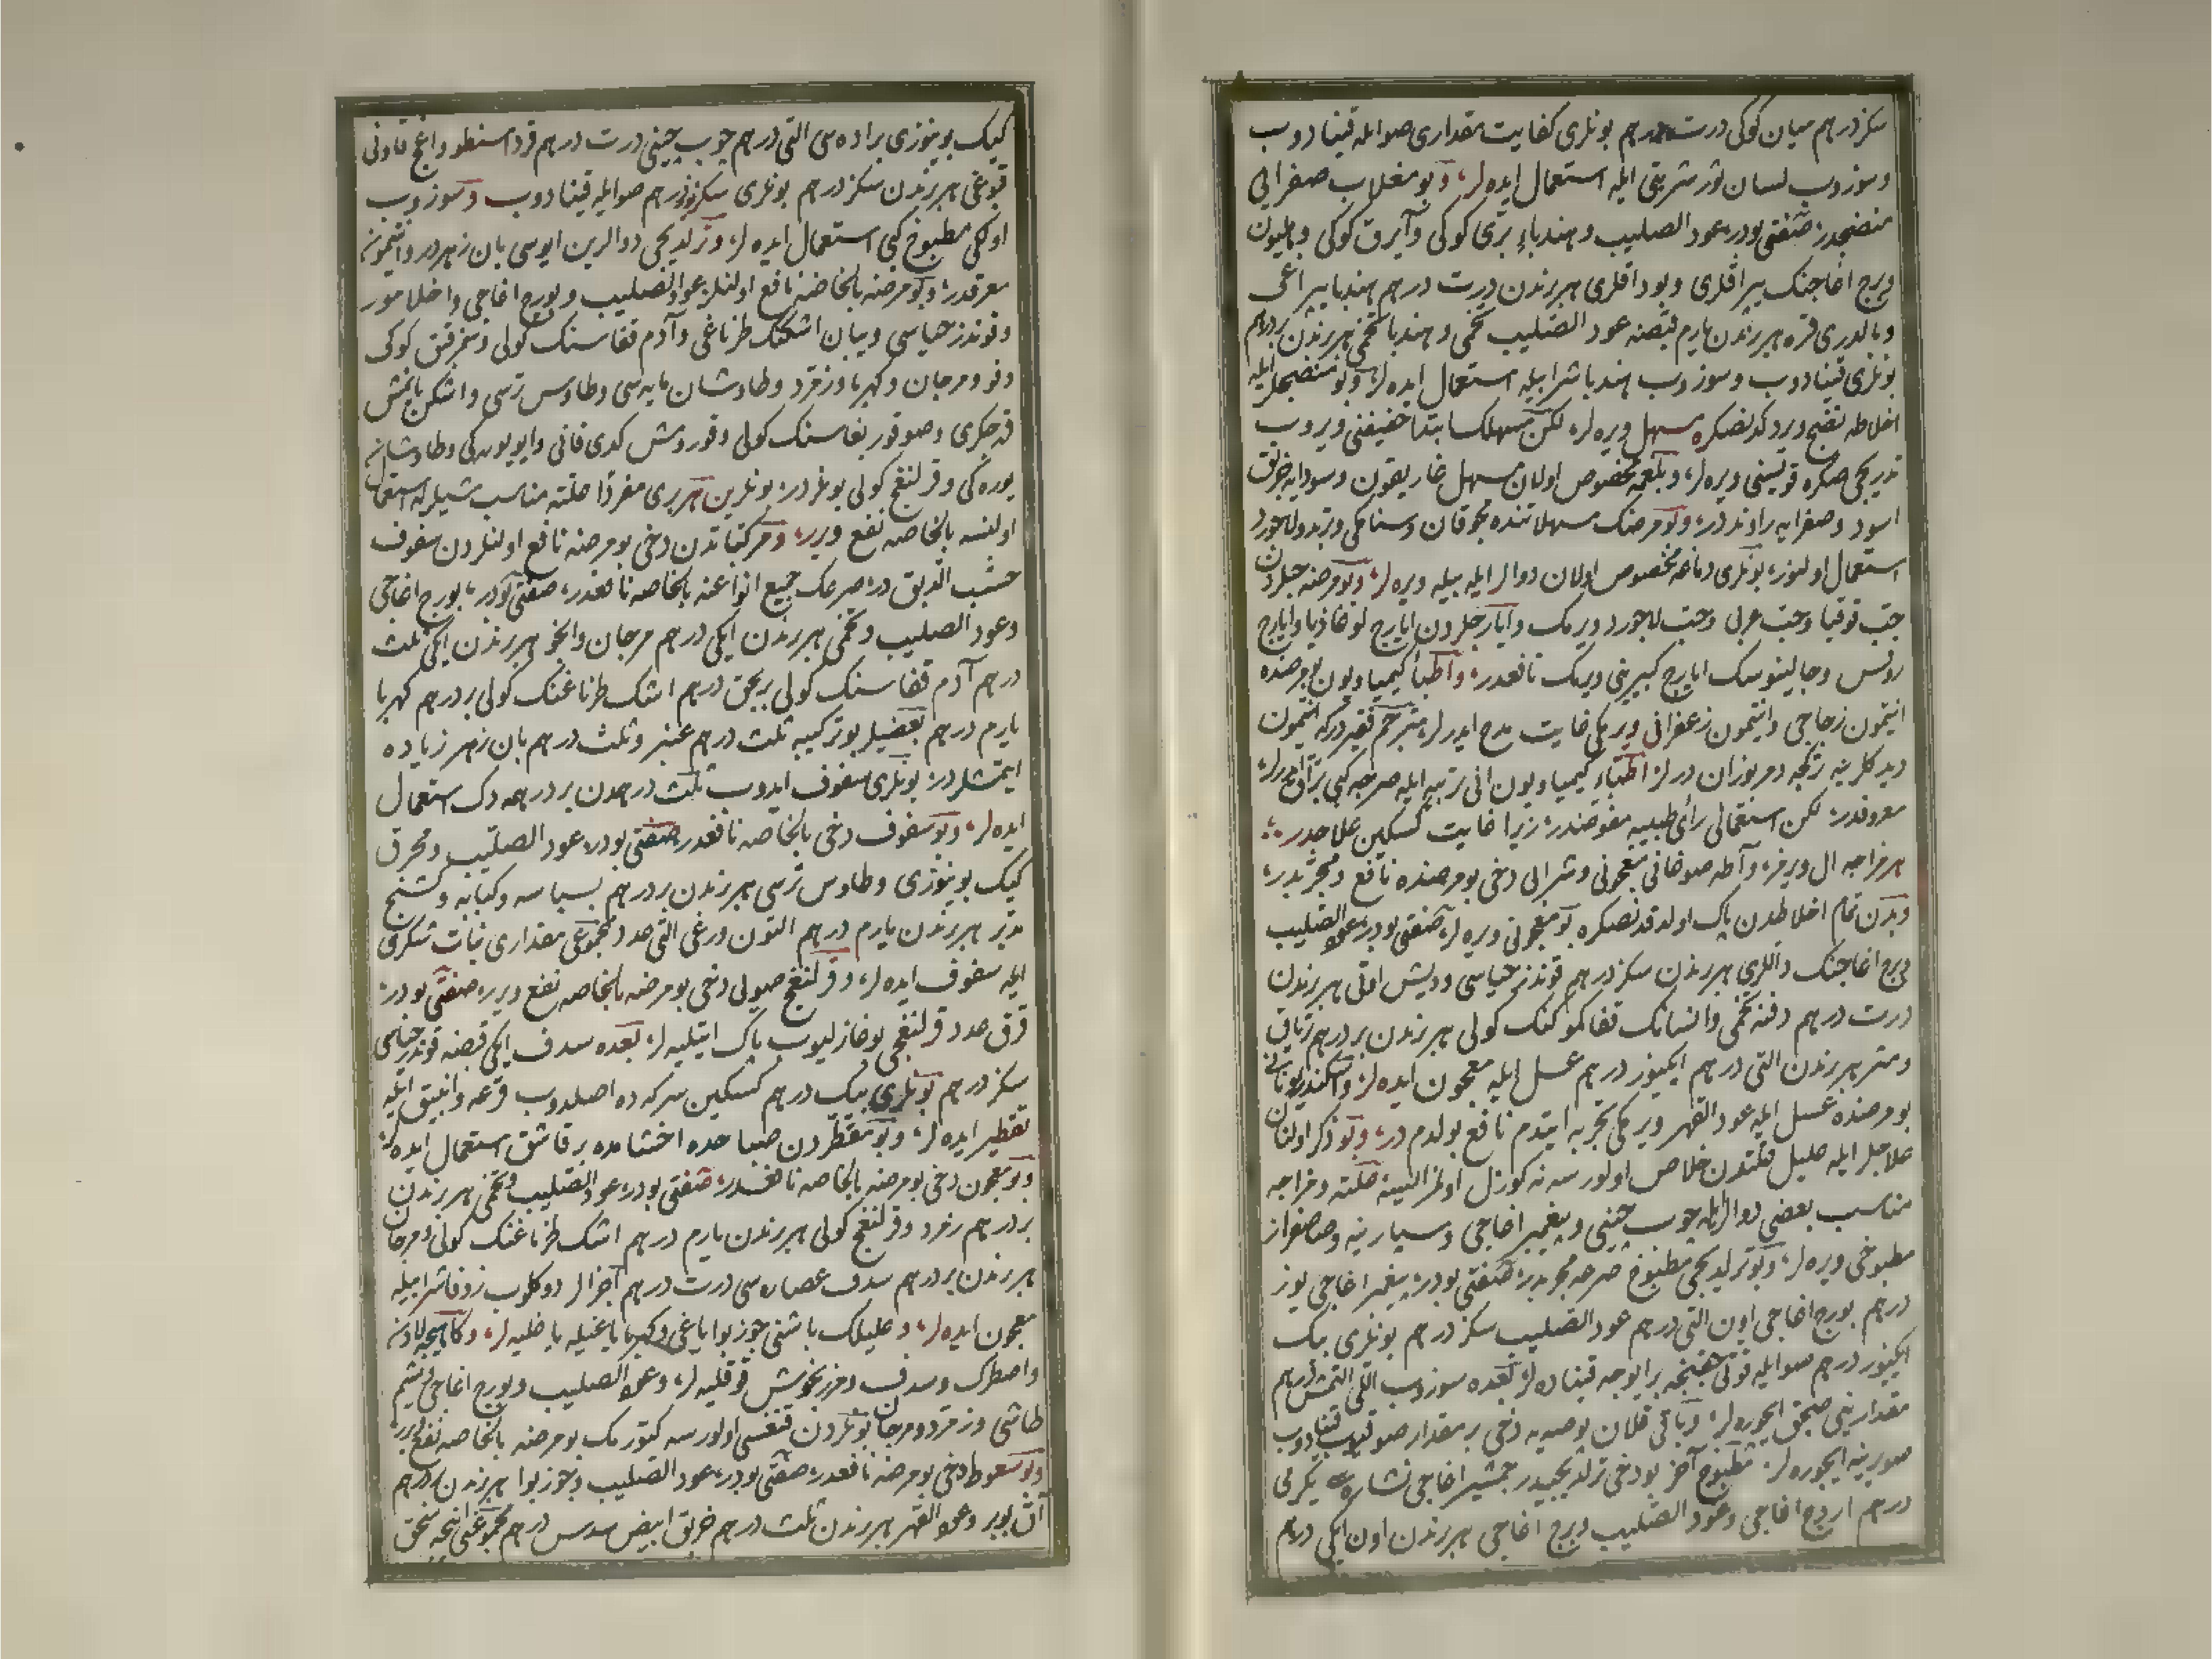 سكز درهم ميان كوكى درت درهم بونلرى كفايت مقدارى صوايله قينادوب
وسوزوب لسان ثور شربتى ايله استعمال ايده لر، وبو مغلاب صفرايى
منضجدر، صنعتى بودر، عود الصليب وهندباء برى كوكى وآيرق كوكى وهليون
وبرج اغاجنك يپراقلرى وبوداقلرى هربرندن درت درهم هندبا يپراغى
وبالدرى قره هربرندن يارم قبضه عود الصليب تخمى وهندبا تخمى هربرندن بر درهم
بونلرى قينادوب وسوزوب هندبا شرابيله استعمال ايده لر، وبو منضجلر ايله
اخلاطه نضج ويردكدنصكره مسهل ويره لر، لكن مسهلك ابتدا خفيفنى ويروب
تدريجى صكره قويسنى ويره لر، وبلغمه مخصوص اولان مسهل غاريقون وسودايه خربق
اسود وصفرايه راونددر، وبو مرضك مسهلاتنده محوقان وسنامكى وتربد ولاجورد
استعمال اولنور، بونلرى دماغه مخصوص اولان دوالر ايله بيله ويره لر، وبو مرضه حبلردن
حب قوقيا وحب عربى وحب لاجورد ويرمك وايارجلردن ايارج لوغاذيا وايارج
روفس وجالينوسك ايارج كبيرينى ويرمك نافعدر، واطباء كيمياويون بو مرضده
انتيمون زجاجى وانتيمون زعفرانى ويرمكى غايت مدح ايدرلر، مترجم فقير دركه انتيمون
ديدكلرينه تركجه دمربوزان درلر، اطباء كيمياويون انى تربيه ايله صرچه كبى براق ايدرلر،
معروفدر، لكن استعمالى رأى طبيبه مفوضدر، زيرا غايت كسكين علاجدر،
هر مزاجه ال ويرمز، وآطه صوغانى معجونى وشرابى دخى بو مرضده نافع ومجربدر،
وبدن تمام اخلاطدن پاك اولدقدنصكره بو معجونى ويره لر، صنعتى بودر، عود الصليب
وبرج اغاجنك دانلرى هربرندن سكز درهم قوندز خياسى وديش اوتى هربرندن
درت درهم دفنه تخمى وانسانك قفا كموكنك كولى هربرندن بر درهم ترياق
ومتر هربرندن التى درهم ايكيوز درهم عسل ايله معجون ايده لر، واسكندر يونانى
بو مرضده عسل ايله عود القهر ويرمكى تجربه ايتدم نافع بولدم در، وبو ذكر اولنان
علاجلر ايله عليل علتدن خلاص اولورسه نه كوزل اولمز ايسه علته ومزاجه
مناسب بعضى دوالر ايله چوب چينى وپيغمبر اغاجى وسپارينه وصاصفراز
مطبوخى ويره لر، وبو ترلديجى مطبوخ صرعه مجربدر، صنعتى بودر، پيغمبر اغاجى يوز
درهم بورج اغاجى اون التى درهم عود الصليب سكز درهم بونلرى بيك
ايكيوز درهم صوايله قوتى چقنجه برايوجه قيناده لر، بعده سوزوب اللى التمش درهم
مقدارينى صجق ايچوره لر، وباقى قلان پوصه يه دخى بر مقدار صو قيوب قينادوب
صويرينه ايچوره لر، مطبوخ آخر بودخى ترلديجيدر جمشير اغاجى نشاره سى يكرمى
درهم اردج اغاجى وعود الصليب وبرج اغاجى هربرندن اون ايكى درهم
كيك بوينوزى براده سى التى درهم چوب چينى درت درهم قرداسنطو واغچ قاونى
قبوغى هربرندن سكز درهم بونلرى سكزيوز درهم صوايله قينادوب وسوزوب
اولكى مطبوخ كبى استعمال ايده لر، وترلديجى دوالرين ايوسى پان زهردر وانتيمون
معرقدر، وبو مرضه بالخاصه نافع اولنلر، عود الصليب وبورج اغاجى واخلامور
وقوندز خياسى ويبان اشكنك طرناغى وآدم قفاسنك كولى وسفرقق كوكى
واو ومرجان وكهربا وزمرد وطاوشان مايه سى وطاوس ترسى واشكن يانمش
قره جكرى وصوقور بغاسنك كولى وقورومش كدى قانى وايو يوره كى وطاوشان
يوره كى وقرلنغج كولى بونلردر، بونلرين هر برى مفردا علته مناسب شيلرله استعمال
اولنسه بالخاصه نفع ويرر، ومركباتدن دخى بو مرضه نافع اولنلردن سفوف
خشب الدبق در، صرعك جميع انواعنه بالخاصه نافعدر، صنعتى بودر، بورج اغاجى
وعود الصليب وتخمى هربرندن ايكى درهم مرجان وانجو هربرندن ايكى ثلث
درهم آدم قفاسنك كولى بربچق درهم اشك طرناغنك كولى بر درهم كهربا
يارم درهم بعضيلر بو تركيبه ثلث درهم عنبر وثلث درهم پان زهر زياده
ايتمشلردر، بونلرى سفوف ايدوب ثلث درهمدن بر درهمه دك استعمال
ايده لر، وبو سفوف دخى بالخاصه نافعدر صنعتى بودر، عود الصليب ومحرق
كيك بوينوزى وطاوس ترسى هربرندن بر درهم بسباسه وكبابه وكشنج
مدبر هربرندن يارم درهم التون ورغى التى عدد مجموعى مقدارى نبات شكرى
ايله سفوف ايده لر، وقرلنغج صويى دخى بو مرضه بالخاصه نفع ويرر، صنعتى بودر،
قرق عدد قرلنغجى بوغازليوب پاك ايتليه لر، بعده سدف ايكى قبضه قوندز خياسى
سكز درهم بونلرى بيك درهم كسكين سركه ده اصلدوب قرعه وانبيق ايله
تقطير ايده لر، وبو مقطردن صباحده اخشامده بر قاشق استعمال ايده لر،
وبو معجون دخى بو مرضه بالخاصه نافعدر، صنعتى بودر، عود الصليب وتخمى هربرندن
بر درهم زمرد وقرلنغج كولى هربرندن يارم درهم اشك طرناغنك كولى ومرجان
هربرندن بر درهم سدف عصاره سى درت درهم اجزالر دوكلوب زوفا شرابيله
معجون ايده لر، وعليلك باشنى جوز بوا ياغى وكهربا ياغيله ياغليه لر، وكاهيجه لادن
واصطرك وسدف ومرزنجوش قوقليه لر، وعود الصليب وبورج اغاجى ويشم
طاشى وزمرد ومرجان بونلردن قنغسى اولورسه كتورمك بو مرضه بالخاصه نفع ويرر
وبو سعوط دخى بو مرضه نافعدر، صنعتى بودر، عود الصليب وجوز بوا هربرندن بر درهم
آق بوبر وعود القهر هربرندن ثلث درهم خربق ابيض سدس درهم مجموعنى انجه سحق